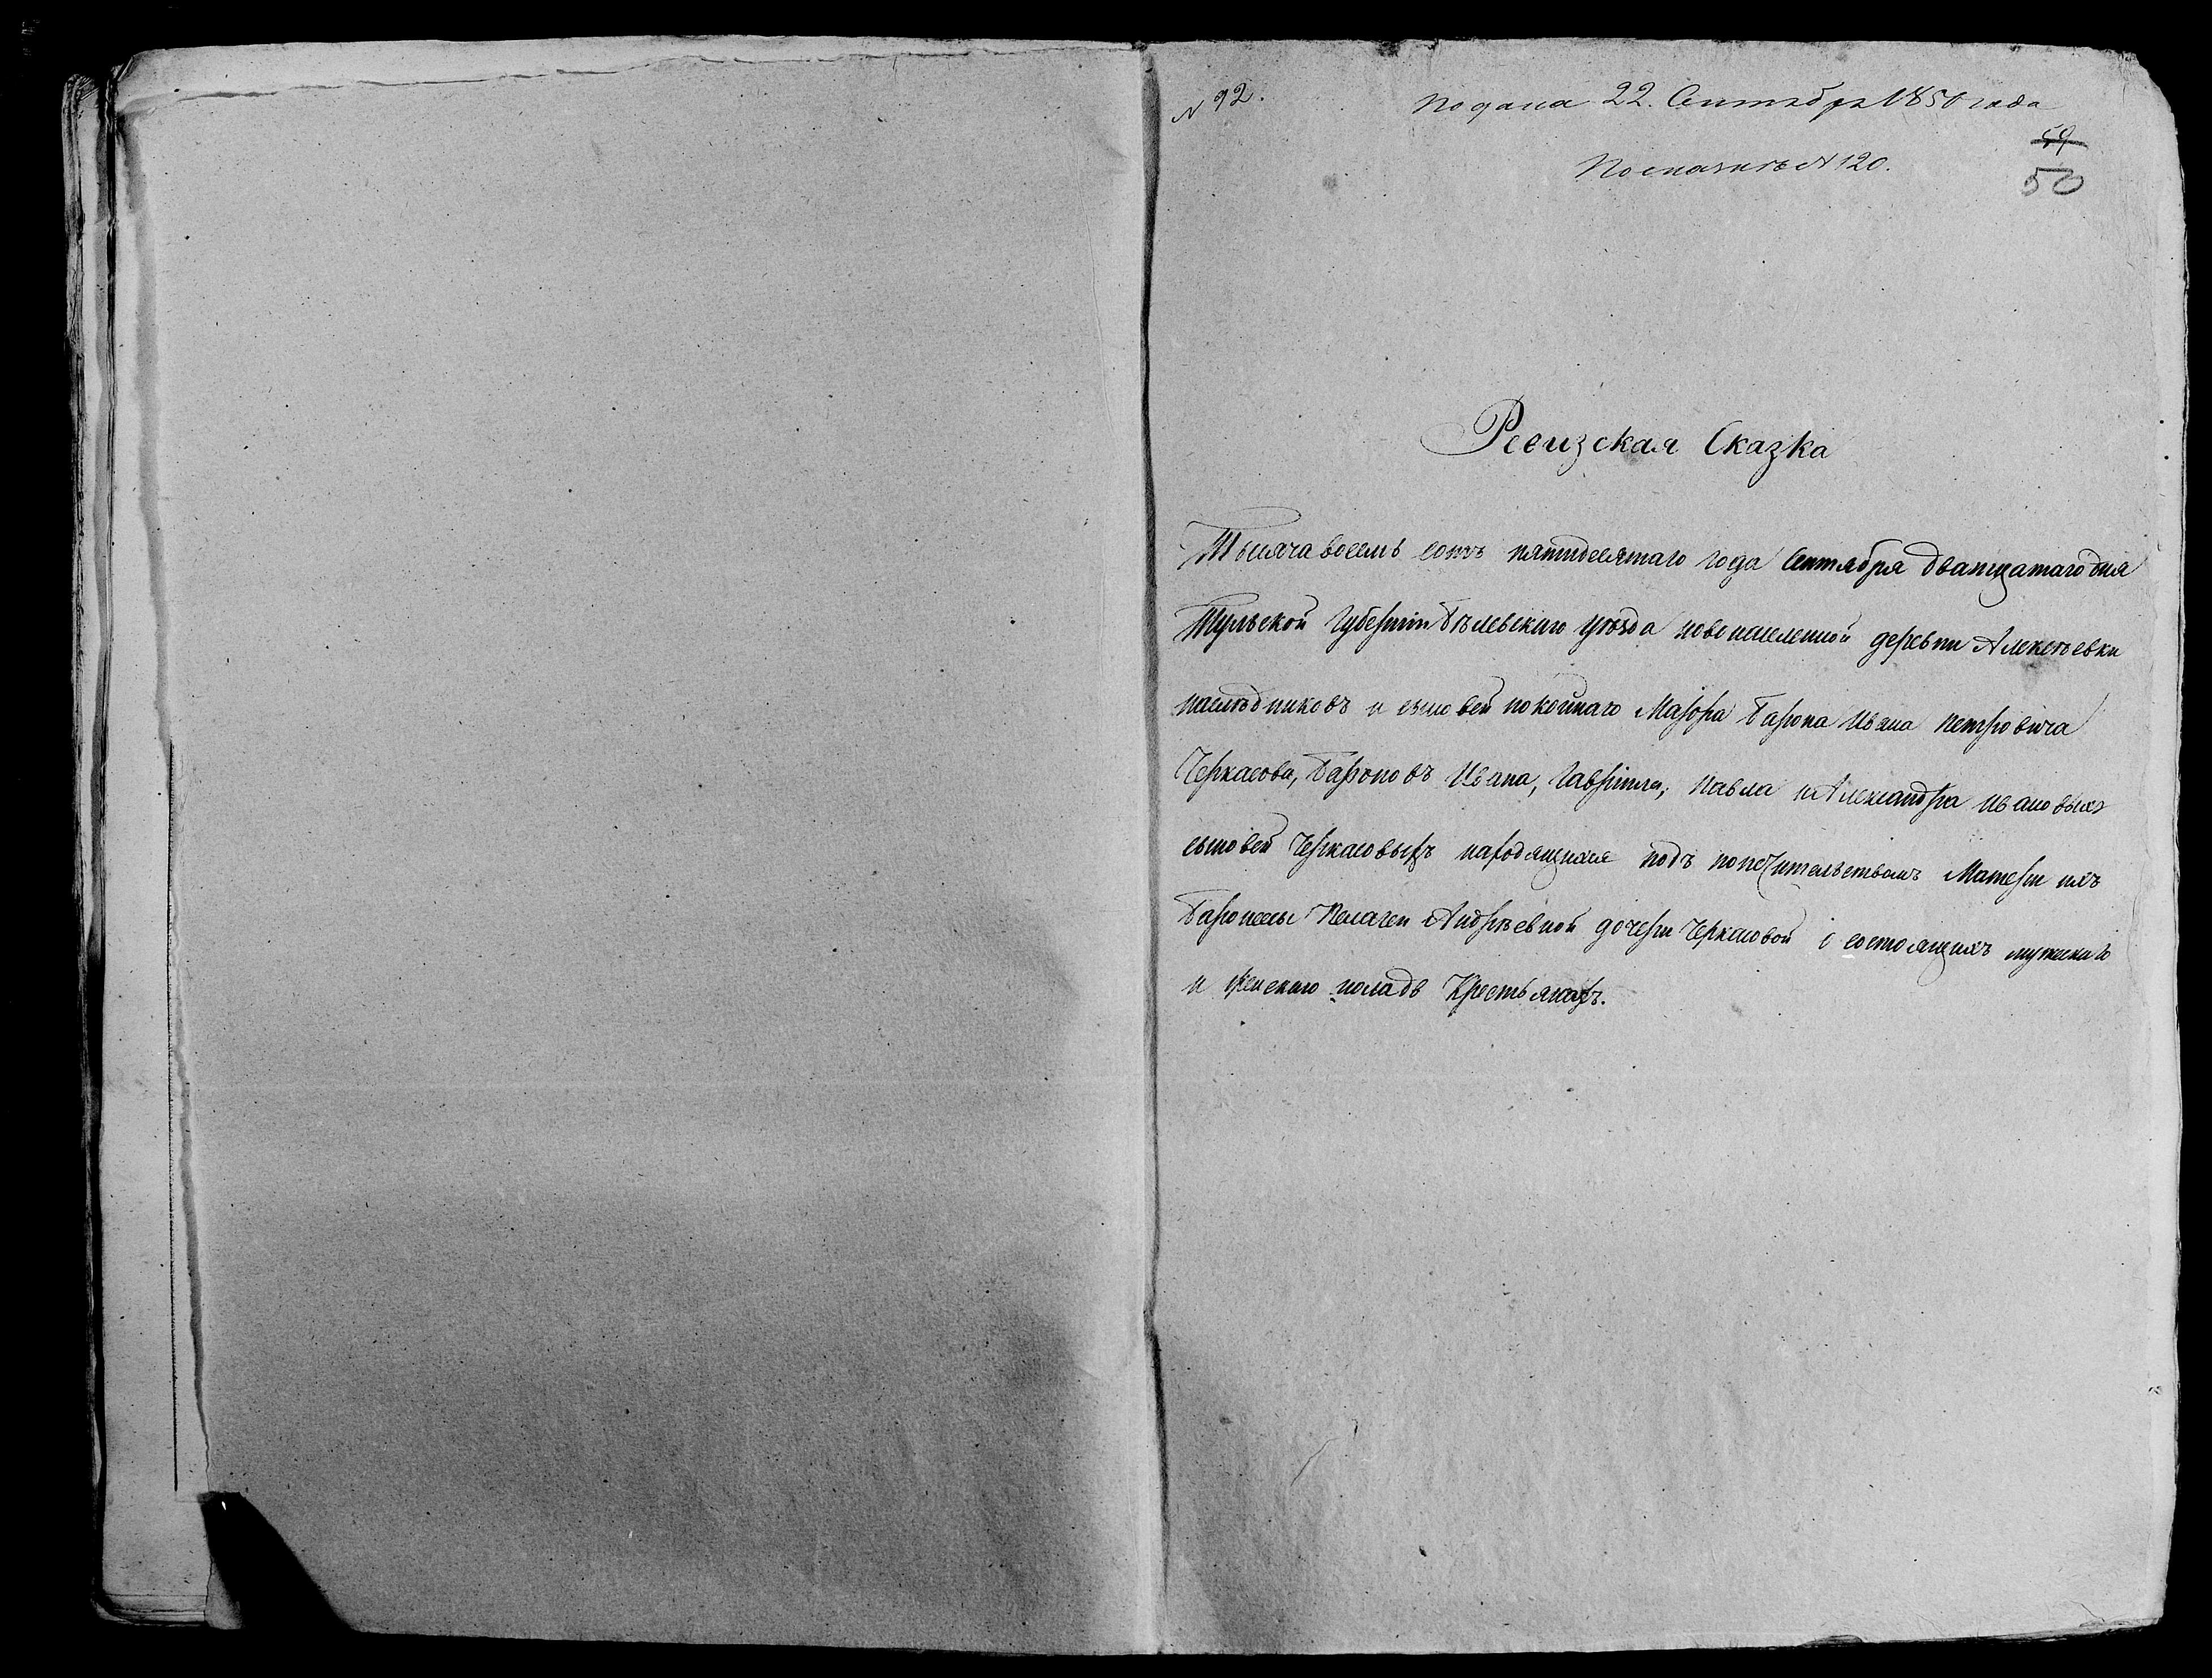 N 92.
Подана 22. Сентября 1850 года
59
По описи N 120.
50
Ревизская Сказка
Тысяча восемь сотъ пятидесятаго года Сентября дватцатаго дня
Тульской Губерніи Бѣлевскаго уѣзда новонаселенной деревни Алексѣевки
наслѣдниковъ и сыновей покойнаго Маіора Барона Ивана Петровича
Черкасова, Бароновъ Ивана, Гавріила, Павла и Александра Ивановыхъ
сыновей Черкасовыхъ находящихся подъ попечительствомъ Матери ихъ
Баронессы Пелагеи Андрѣевной дочери Черкасовой о состоящихъ мужскаго
и женскаго пола Крестьянахъ.